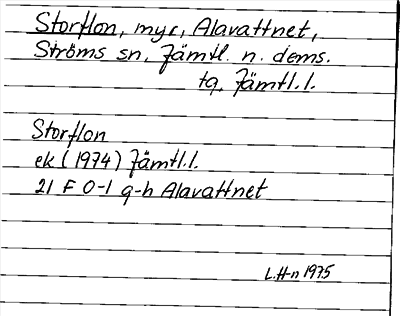 Storflon, myr, Alavattnet,
Ströms sn, Jämtl. n. doms.
tg, Jämtl.l.
Storflon
ek (1974) Jämtl.l.
21 F 0-1 g-h Alavattnet
L.H-n 1975